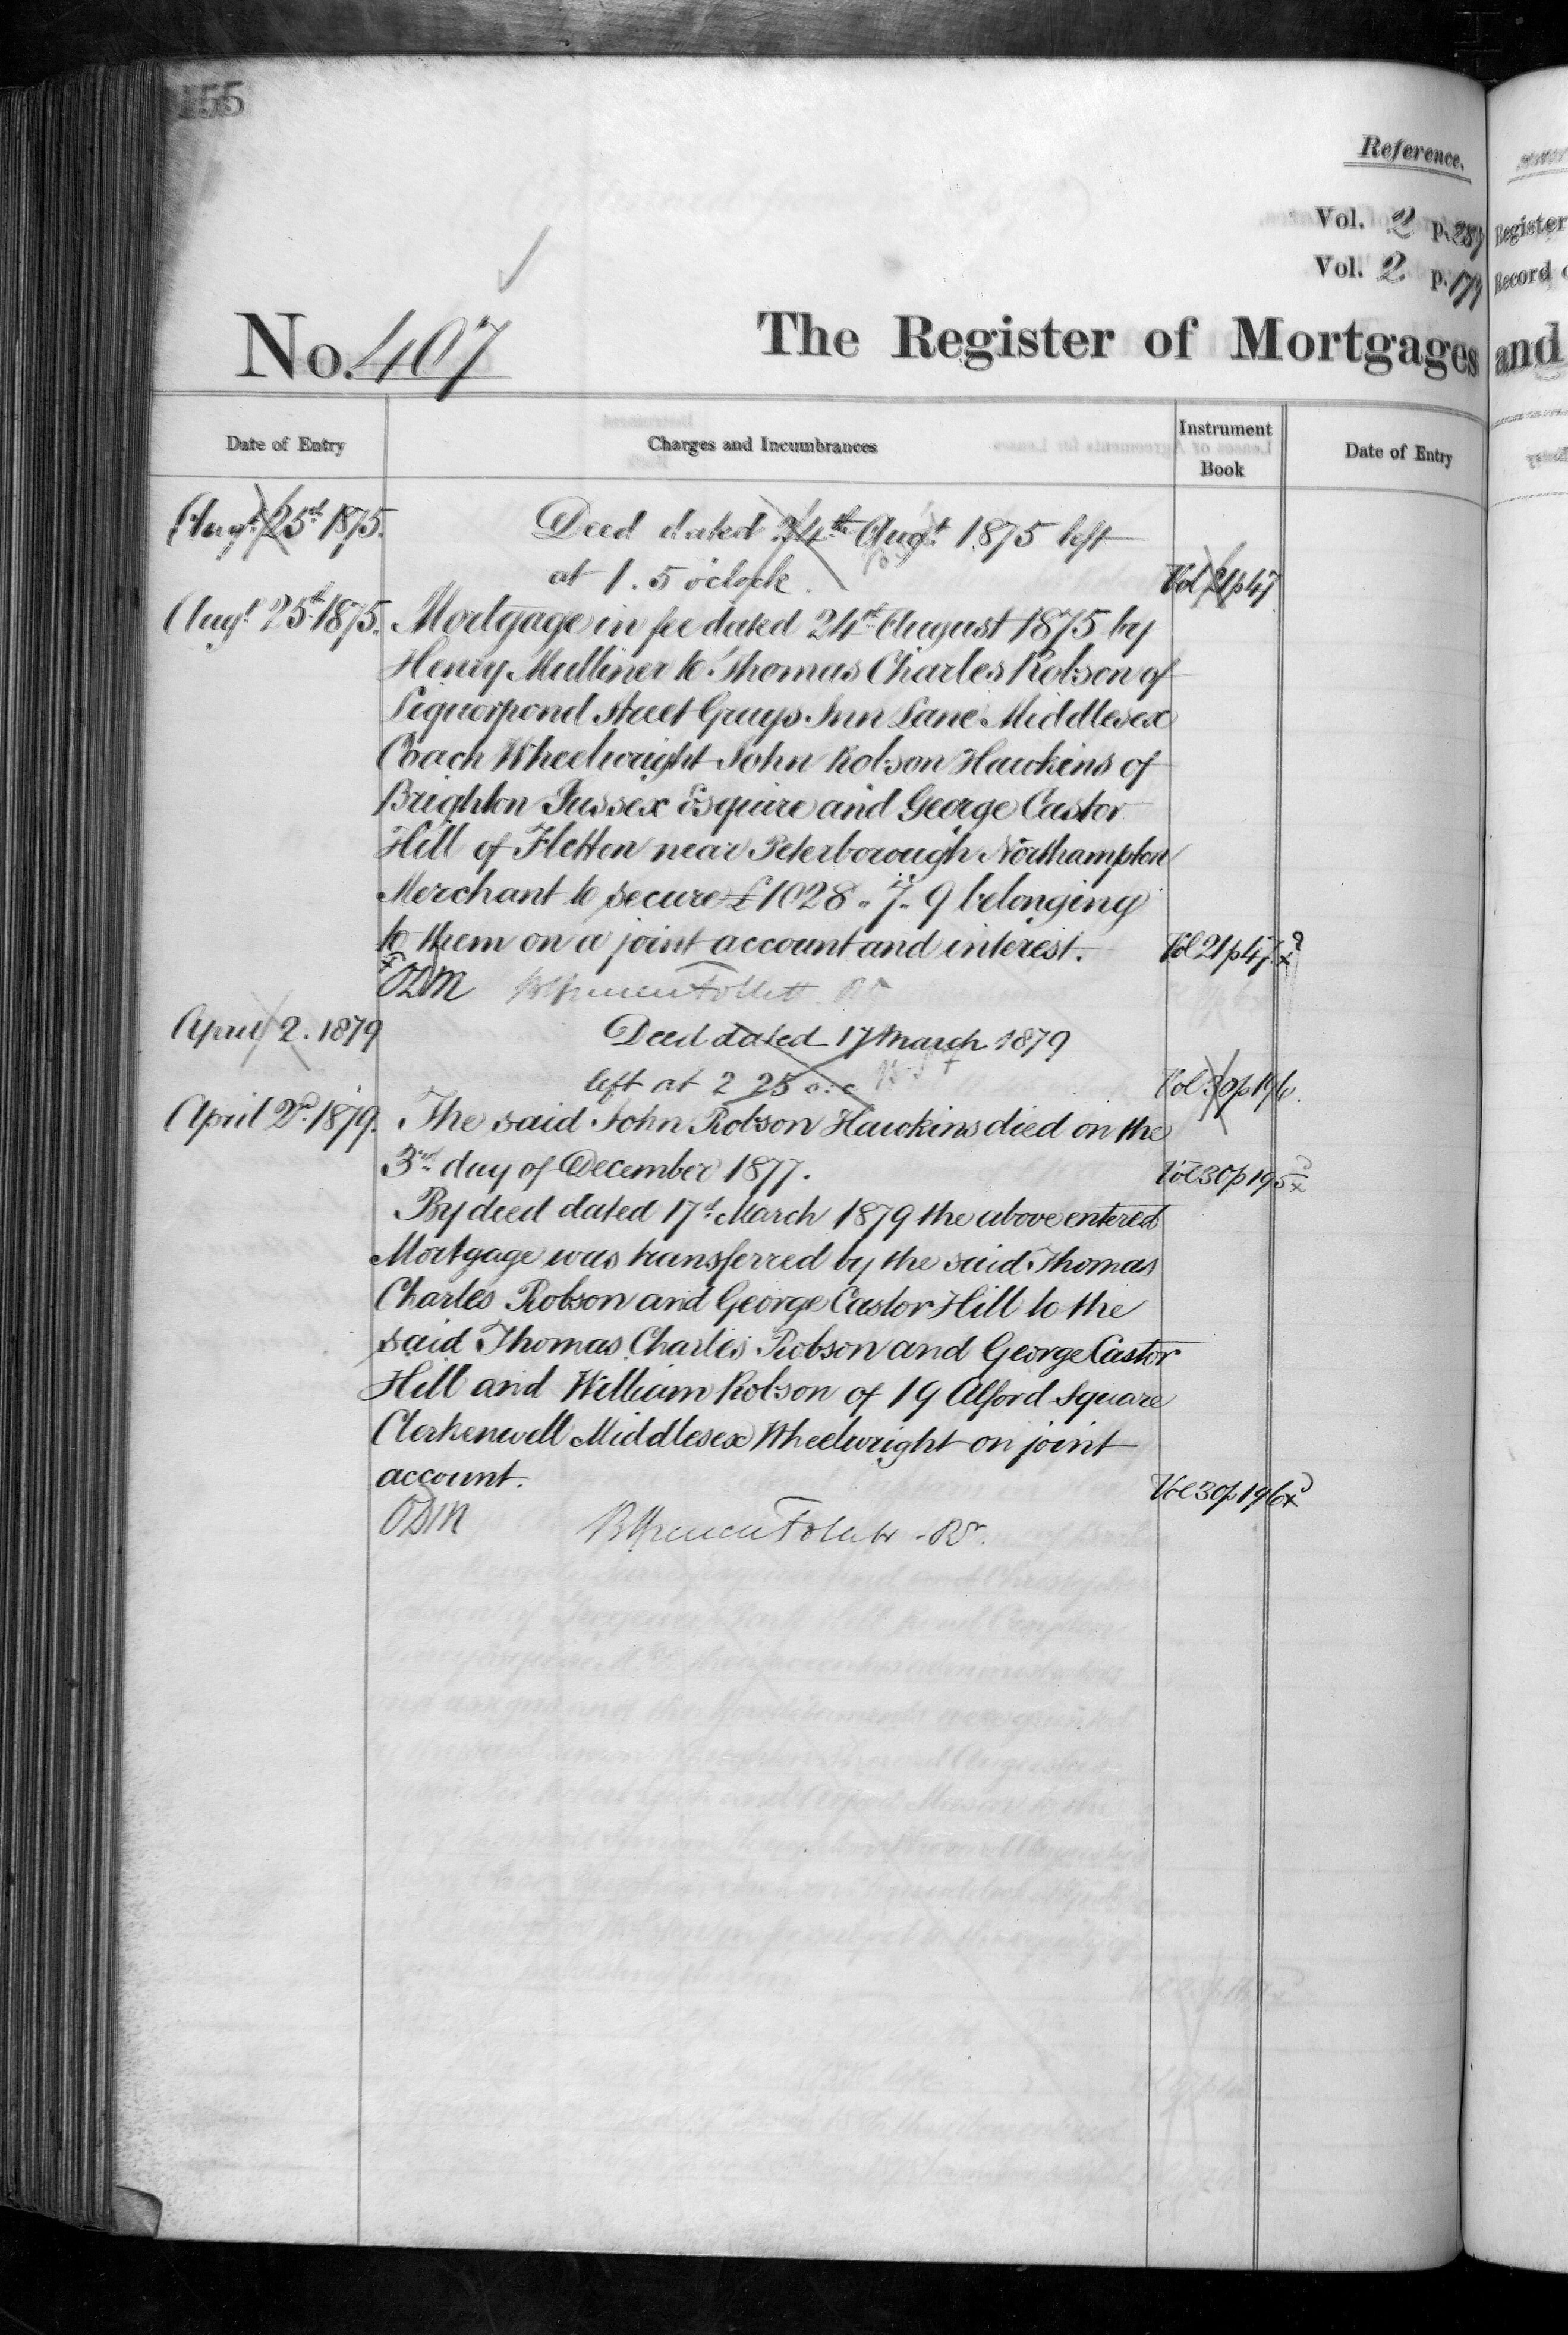 155
Reference.
Vol. 2 p. 289
Vol. 2. p. 179
Register
Record
No. 407
The Register of Mortgages and
Date of Entry
Charges and Incumbrances
Instrument Book
Date of Entry
Augt. 25th 1875. Deed dated 24th Augt. 1875 left
at 1.5 o'clock. Vol 21 p 47
Augt. 25th 1875. Mortgage in fee dated 24th August 1875 by
Henry Mulliner to Thomas Charles Robson of
Liquorpond Street Grays Inn Lane Middlesex
Coach Wheelwright John Robson Hawkins of
Brighton Sussex Esquire and George Castor
Hill of Fletton near Peterborough Northampton
Merchant to secure £1028 " 7 " 9 belonging
to them on a joint account and interest. Vol 21 p 47. x
ODM Follett. Rr
April 2. 1879 Deed dated 17 March 1879
left at 2 25 o.c Vol 30 p 196.
April 2d. 1879. The said John Robson Hawkins died on the
3rd day of December 1877. Vol 30 p 195 x
By deed dated 17th March 1879 the above entered
Mortgage was transferred by the said Thomas
Charles Robson and George Castor Hill to the
said Thomas Charles Robson and George Castor
Hill and William Robson of 19 Alford Square
Clerkenwell Middlesex Wheelwright on joint
account. Vol 30 p 196 x
ODM Follett - Rr.